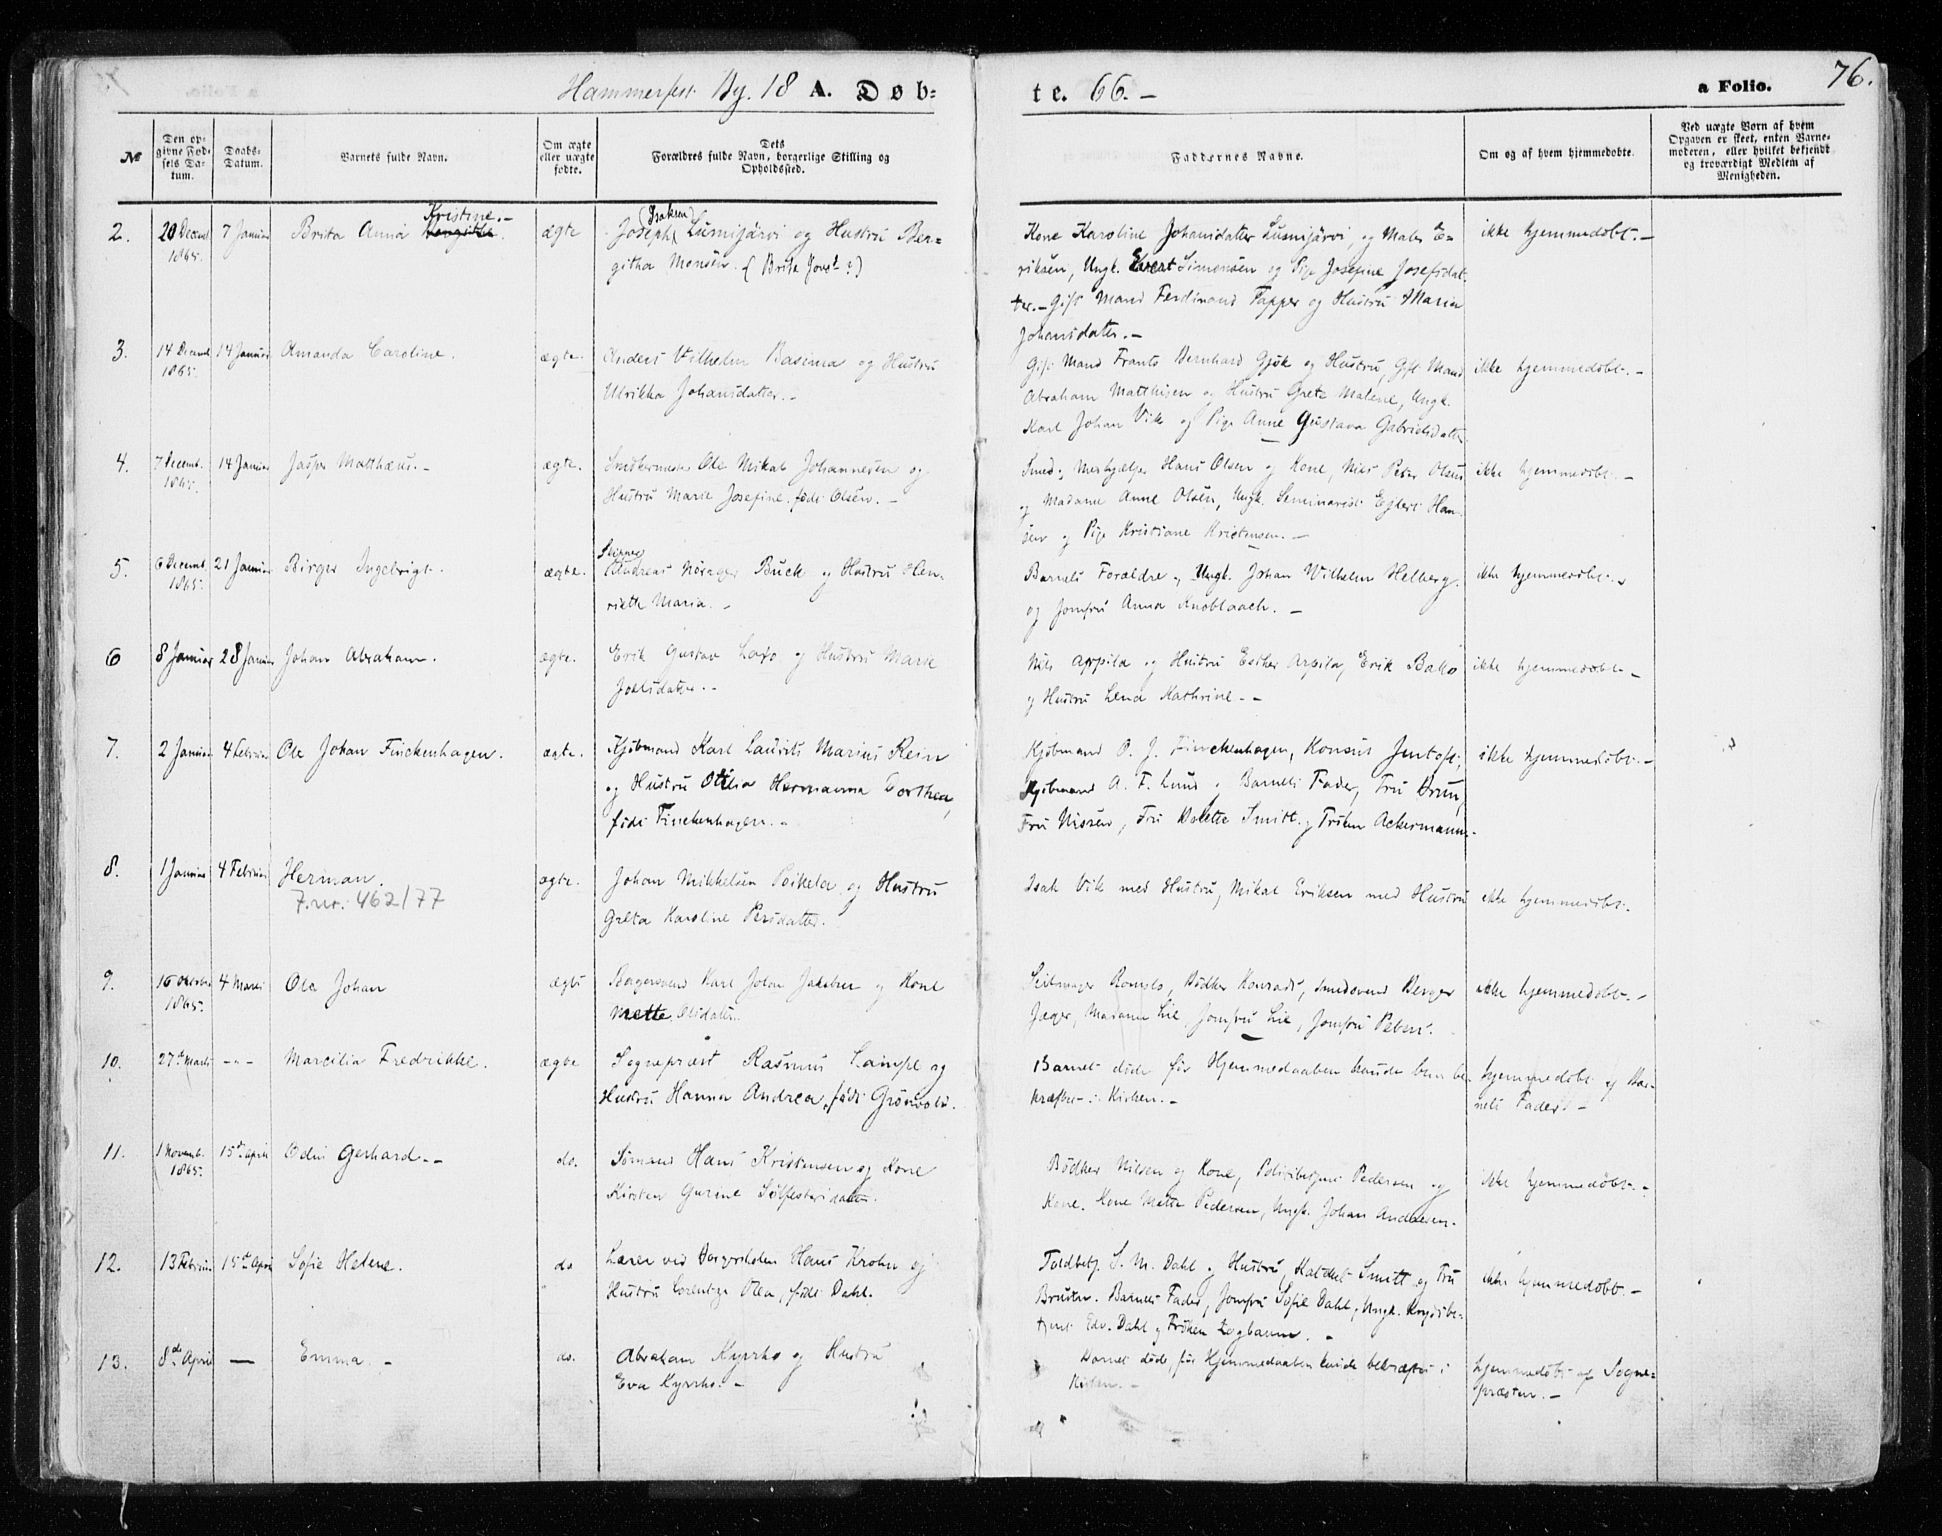 Hammerfest By. 18 A. Døb-
te. 66. -
a Folio. 76.
№
Den op-
givne Fød-
sels Da-
tum.
Daabs-
Datum.
Barnets fulde Navn.
Om ægte
eller uægte
fødte.
Dets
Forældres fulde Navn, borgerlige Stilling og
Opholdssted.
Faddernes Navne.
Om og af hvem hjemmedøbt.
Ved uægte Børn af hvem
Opgaven er skeet, enten Barne-
moderen, eller hvilket bekjendt
og troværdigt Medlem af
Menigheden.
2. 20 Decemb 1865. 7 Januar Brita Anna Kristine. - ægte
Joseph (Isaksen) Lumijärvi og Hustru Ber-
githa Monsen. (Brita Joh ?)
Kone Karoline Johansdatter Lumijärvi, og Mates E-
riksen, Ungk. Evert Simonsen og Pige Josefine Josefsdat-
ter. - Gift Mand Ferdinand Tapper og Hustru Maria
Johansdatter. -
ikke hjemmedøbt. -
3. 14 Decemb 1865. 14 Januar Amanda Caroline. ægte.
Anders Vilhelm Basima og Hustru
Ulrikka Johansdatter. -
Gift Mand Frants Bernhard Gjøk og Hustru, Gift Mand
Abraham Matthisen og Hustru Grete Malene, Ungk.
Karl Johan Vik og Pige Anne Gustava Gabrielsdatter
ikke hjemmedøbt. -
4. 7 Decemb. 1865. 14 Januar Jasper Matthæus. - ægte.
Snedkermester Ole Mikal Johannesen og
Hustru Marie Josefine, født Olsen. -
Hans Olsen og Kone, Nils Peter Olsen
og Madame Anne Olsen, Ungk. Seminarist Eilert Han-
sen og Pige Kristiane Kristensen. -
ikke hjemmedøbt. -
5. 6 Decemb. 1865. 21 Januar Birger Ingebrigt. ægte.
Skipper
Andreas Norager Buck og Hustru Hen-
riette Maria. -
Barnets Forældre og Ungk. Johan Vilhelm Helberg.
og Jomfru Anna Knoblauch. -
ikke hjemmedøbt. -
6 8 Januar 28 Januar Johan Abraham. ægte.
Erik Gustav Laxo og Hustru Marie
Joelsdatter. -
Nils Appila og Hustru Esther Arpila, Erik Balko
og Hustru Lena Kathrine. -
ikke hjemmedøbt -
7. 2 Januar 4 Februar Ole Johan Finckenhagen. ægte.
Kjøbmand Karl Laurits Marius Rein
og Hustru Otilia Hermanna Dorthea,
født Finckenhagen. -
Kjøbmand O. J. Finckenhagen, Konsul Jentoft,
Kjøbmand A. F. Lund og Barnets Fader, Fru Brun,
Fru Nissen, Fru Dolette Smitt og Frøken Ackermann. -
ikke hjemmedøbt. -
8. 1 Januar 4 Februar Herman. ægte.
F.nr. 462/77
Johan Mikkelsen Poikela og Hustru
Greta Karoline Persdatter.
Isak Vik med Hustru, Mikal Eriksen med Hustru
ikke hjemmedøbt.
9. 16 Oktober 1865. 4 Marts Ole Johan ægte
Karl Johan Jakobsen og Kone
Mette Olsdatter.
Seilmager Romslo, Bødker Konradi, Smedsvend Berger
Jæger, Madame Lie, Jomfru Lie, Jomfru Petersen.
ikke hjemmedøbt. -
10. 27de Marts - " - Marcilia Fredrikke. ægte
Sognepræst Rasmus Lampe og
Hustru Hanna Andrea, født Grønvold.
Barnet døde før Hjemmedaaben kunde blive be-
kræftet i Kirken. -
hjemmedøbt af Bar-
nets Fader. -
11. 1 Novemb. 1865. 15de April Odin Gerhard. - do.
Sømand Hans Kristensen og Kone
Kirsten Gurine Sølfestersdatter.
Bødker Nilsen og Kone, Politibetjent Pedersen og
Kone. Kone Mette Pedersen, Ungk. Johan Andersen.
ikke hjemmedøbt. -
12. 13 Februar 15de April Sofie Helene. do
Lærer ved Borgerskolen Hans Krohn og
Hustru Lorentze Olea, født Dahl.
Toldbetj. S. M. Dahl og Hustru, Smitt og Fru
Barnets Fader, Jomfru Sofie Dahl, Ungk. Krydsbe-
tjent Edv. Dahl og Frøken Løgbaum. -
ikke hjemmedøbt. -
13. 8de April — Emma. - do.
Abraham Kyrrho og Hustru
Eva Kyrrho. -
Barnet døde, før Hjemmedaaben kunde bekræftes i
Kirken. -
hjemmedøbt af Sogne-
præsten. -